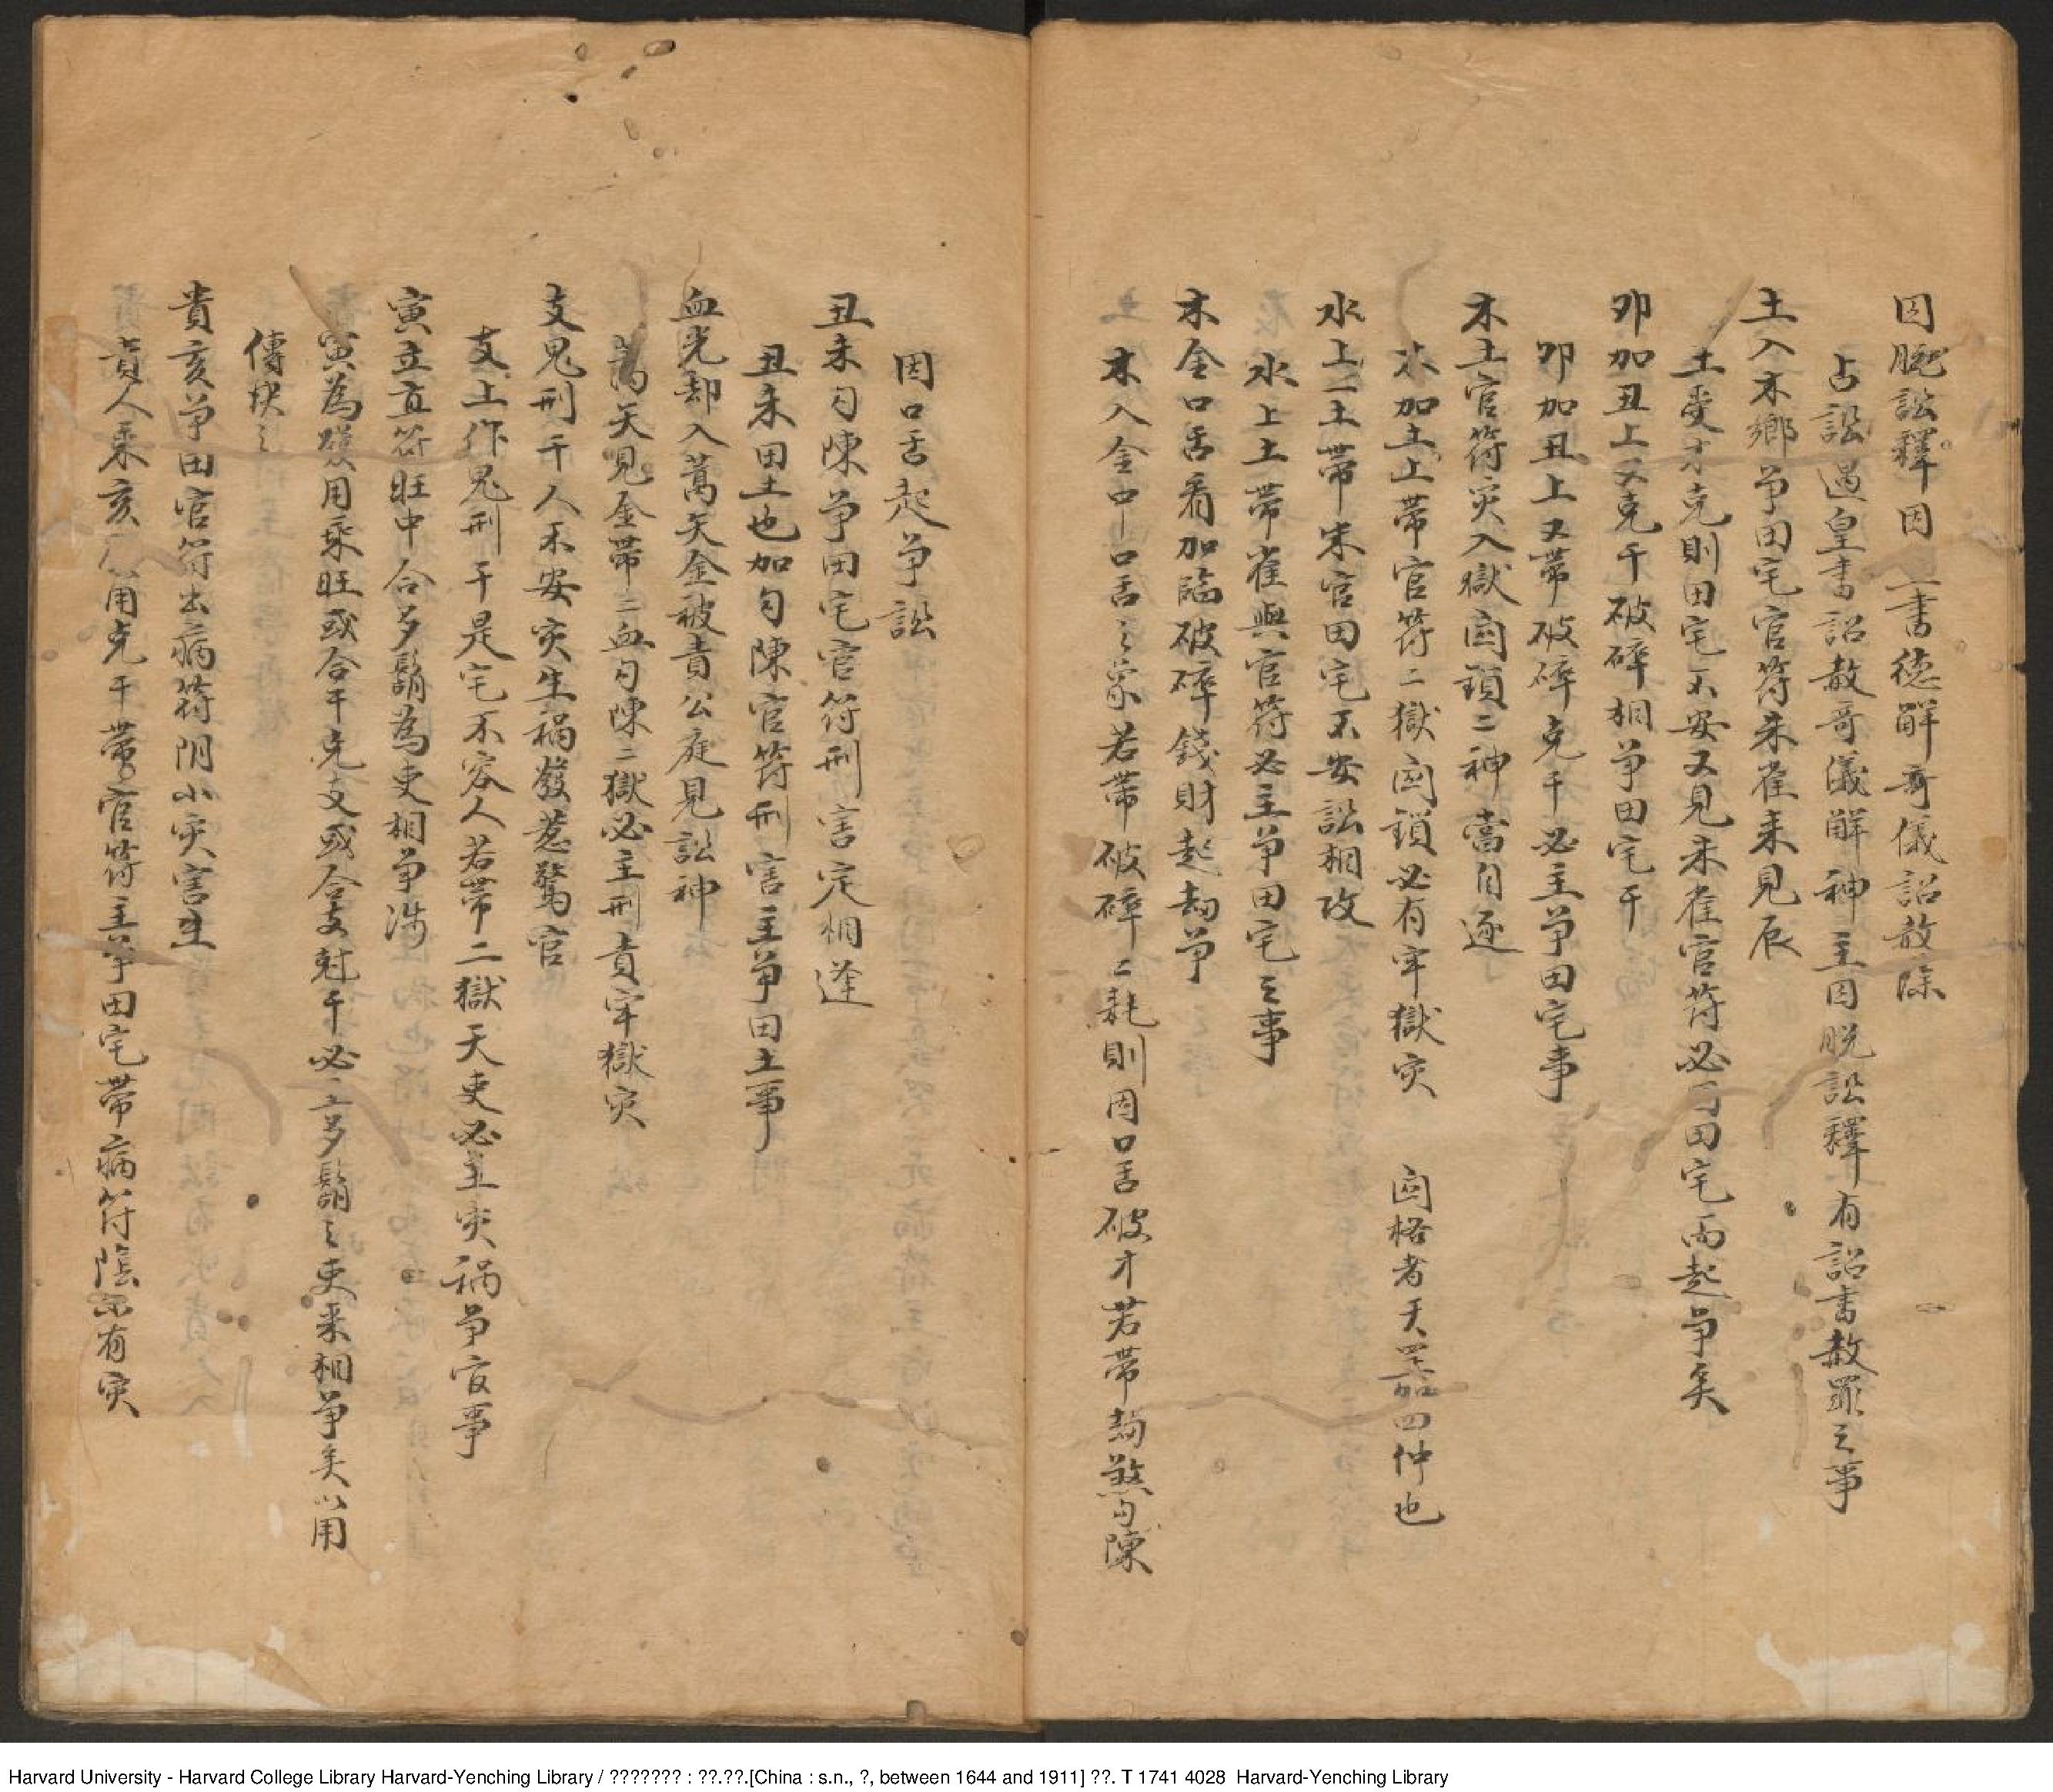 囚脱訟釋因一書德解奇儀詔赦除
占訟遇皇書詔赦奇儀解神主囚脱訟釋有詔書赦罪之事
土入木鄉爭田宅官符朱雀来見辰
土受才克則田宅不安又見朱雀官符必主田宅而起爭矣
卯加丑上又克干破碎相爭田宅干
卯加丑上又帶破碎克干必主爭田宅事
木土官符灾入獄囪鎖二神當自逐
木加土上帶官符二獄囪鎖必有牢獄灾 囪格者天噐四仲也
水上一土帶朱官田宅不安訟相攻
水上土帶雀與官符必主爭田宅之事
木金口舌看加臨破碎錢財起劫爭
木入金中口舌之象若帶破碎二耗則因口舌破才若帶劫煞勾陳
因口舌起爭訟
丑未勾陳爭田宅官符刑害定相逢
丑未田土也加勾陳官符刑害主爭田土事
血光却入蒿矢金被責公庭見訟神
蒿矢見金帶二血勾陳二獄必主刑責牢獄灾
支鬼刑干人不安灾生禍發惹驚官
支上作鬼刑干是宅不容人若帶二獄天吏必主灾禍爭官事
寅立直符旺中合多鬍為吏相爭涉
寅為發用乘旺或合干克支或合支尅干必主多鬍之吏来相爭矣以用
傳決之
貴亥爭田官符出病符阴小灾害生
貴人乘亥發用克干帶官符主爭田宅帶病符陰小有灾
Harvard University - Harvard College Library Harvard-Yenching Library / ??????? : ??.??.[China : s.n., ?, between 1644 and 1911] ??. T 1741 4028 Harvard-Yenching Library